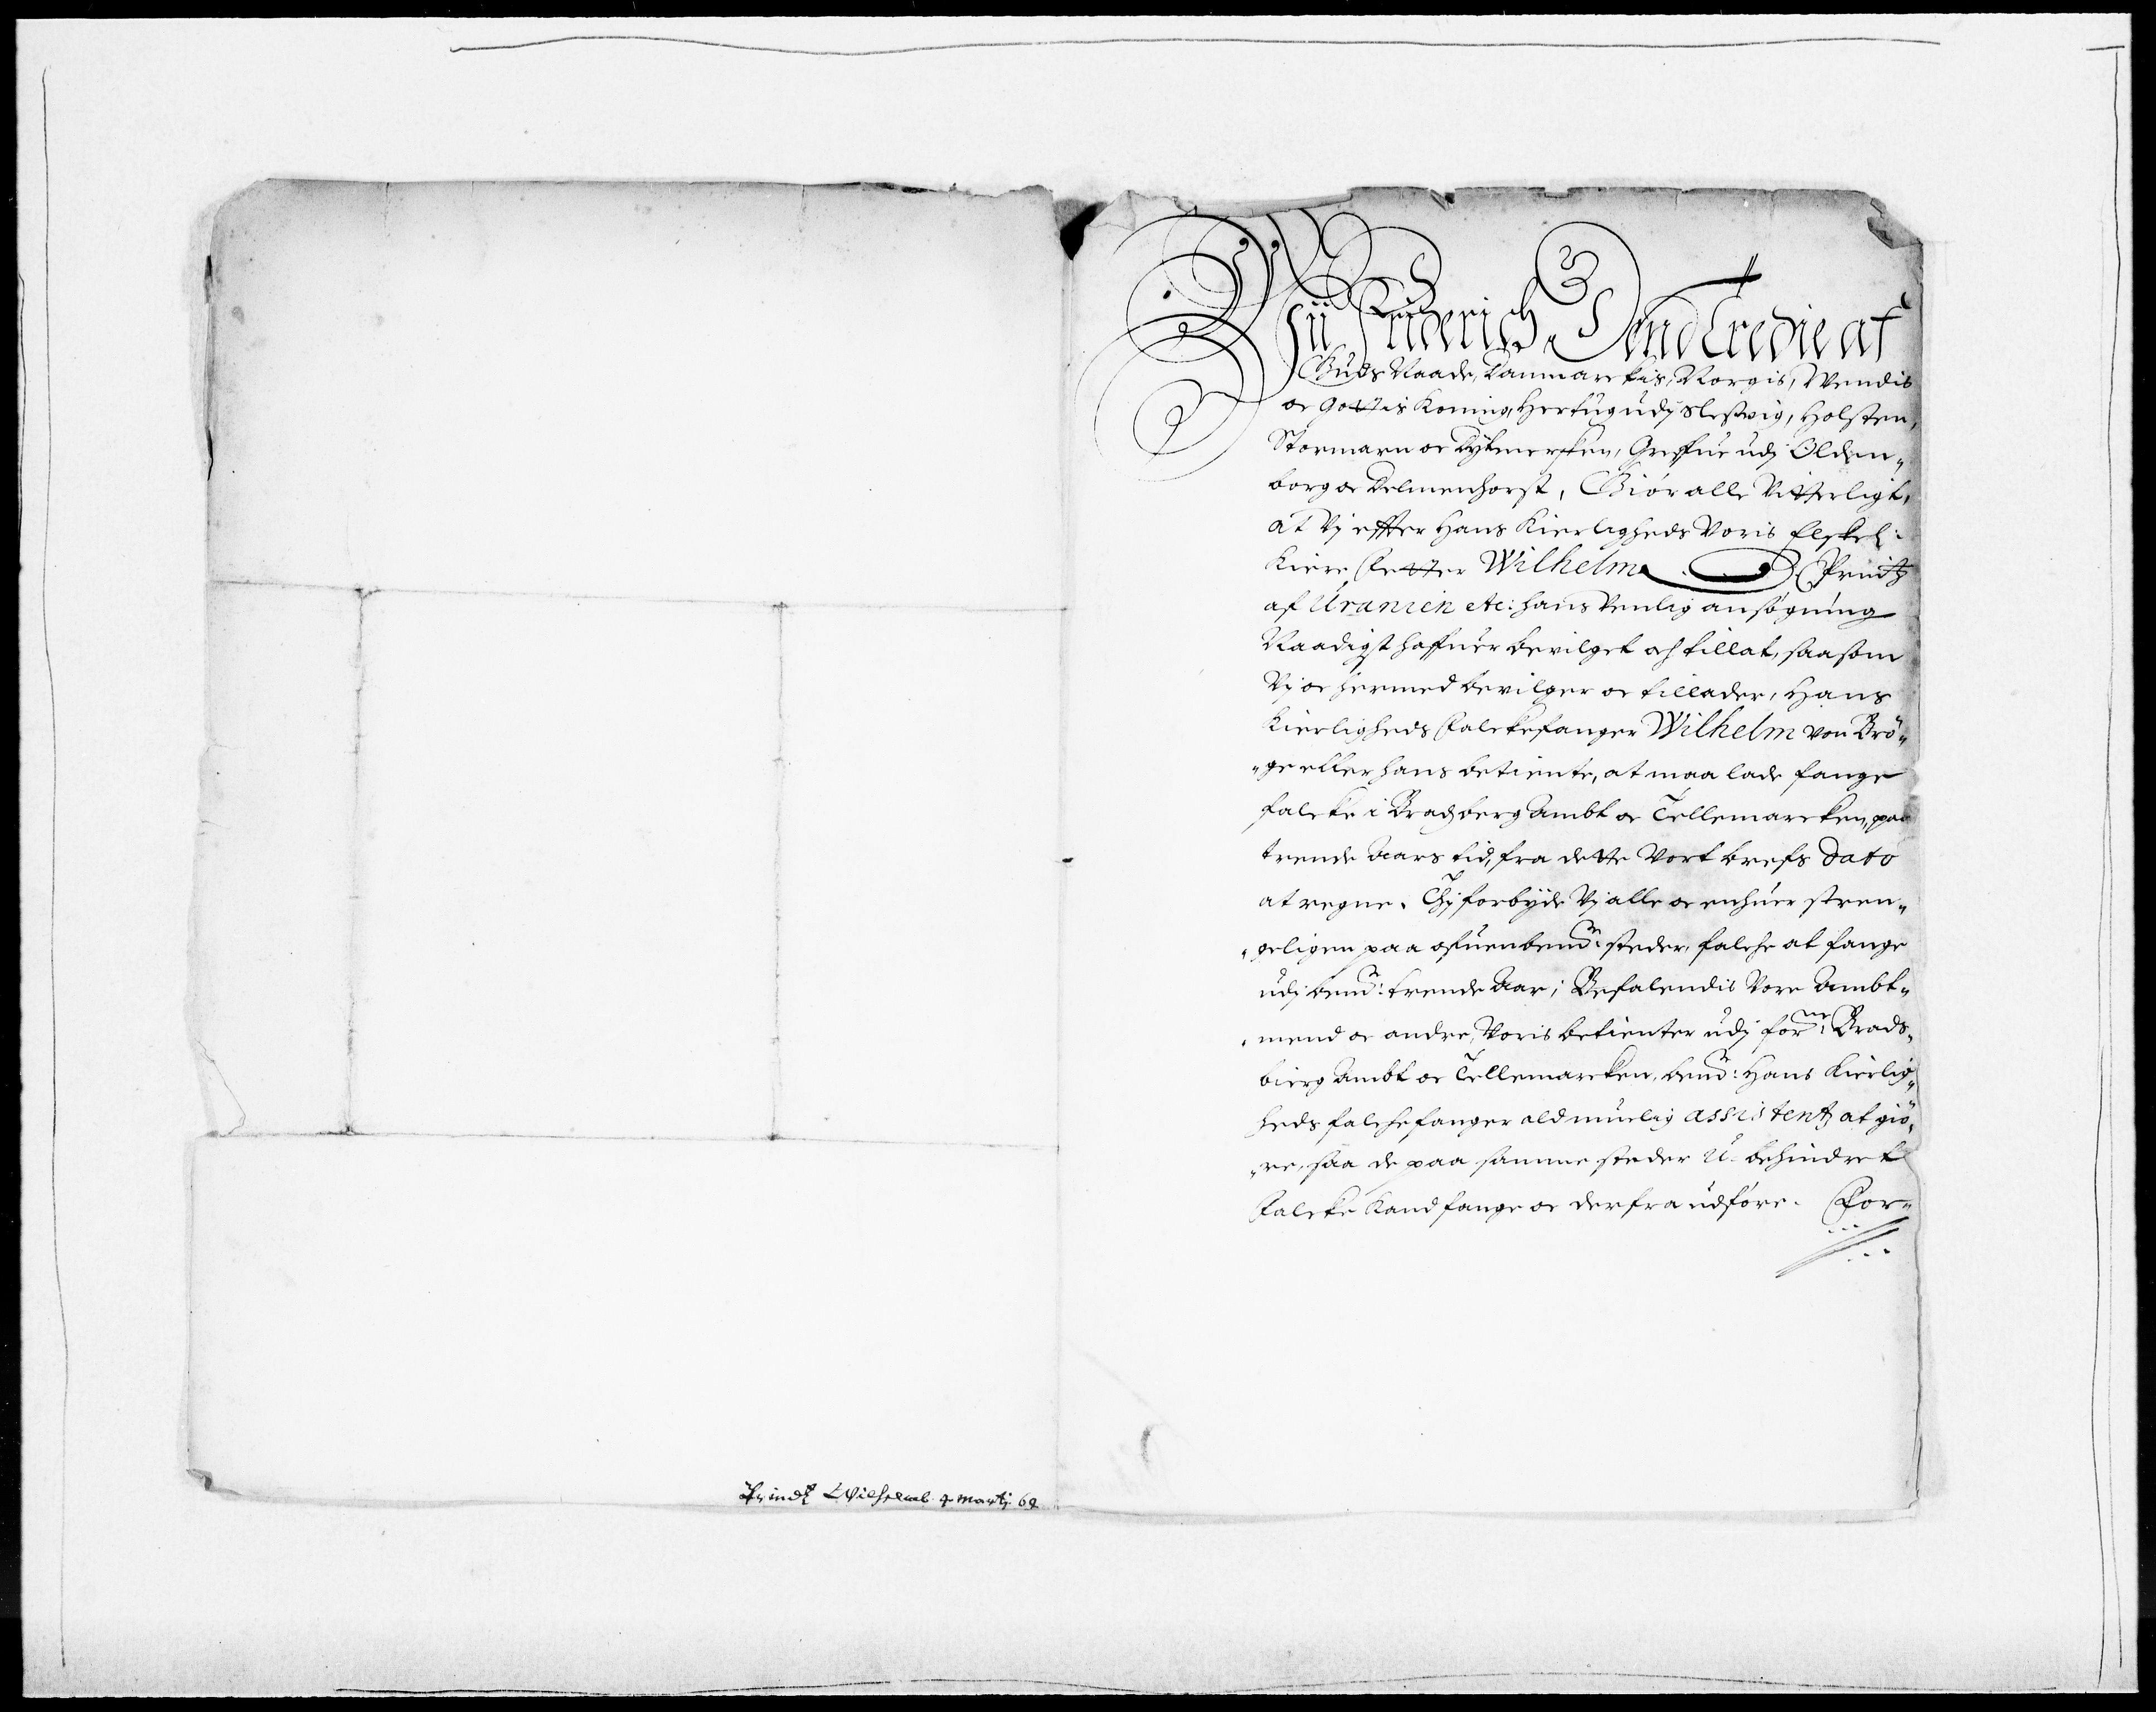 Wii Friderich Dend Tredie af
Guds Naade, Danmarckis, Norgis, Wendis
oc Gottis Koning, Hertug udj Slesvig, Holsten,
Stormarn oc Dytmersken, Greffue udj Olden„
borg oc Delmenhorst, Giör alle Vitterligt,
at Vj effter Hans Kierligheds Voris Elskel:
Kiere Fetter Wilhelm Printz
af Uranien etc: hans Venlig ansögning
Naadigst haffuer bevilget och tillat, saasom
Vj oc hermed bevilger oc tillader, Hans
Kierligheds Falckefanger Wilhelm von Brö„
„ge eller hans betiente, at maa lade fange
falcke i Bradsberg Ambt oc Tellemarcken, paa
trende Aars tid, fra dette Vort brefs Dato
at regne. Thj forbyde Vj alle oc enhuer stren„
„geligen paa ofuenbemd.te steder, falche at fange
udj bemd.te: trende Aar; Befalendis Vore Ambt„
„mend oc andre, Voris betienter udj forne: Brads„
bierg Ambt oc Tellemarcken, bemd.te: Hans Kierlig„
heds falchefanger ald muelig assistentz at giö„
„re, saa de paa samme steder U-behindret
Falcke Kand fange oc derfra udföre. For„
Printz Wilhelmb 4 Martj 69